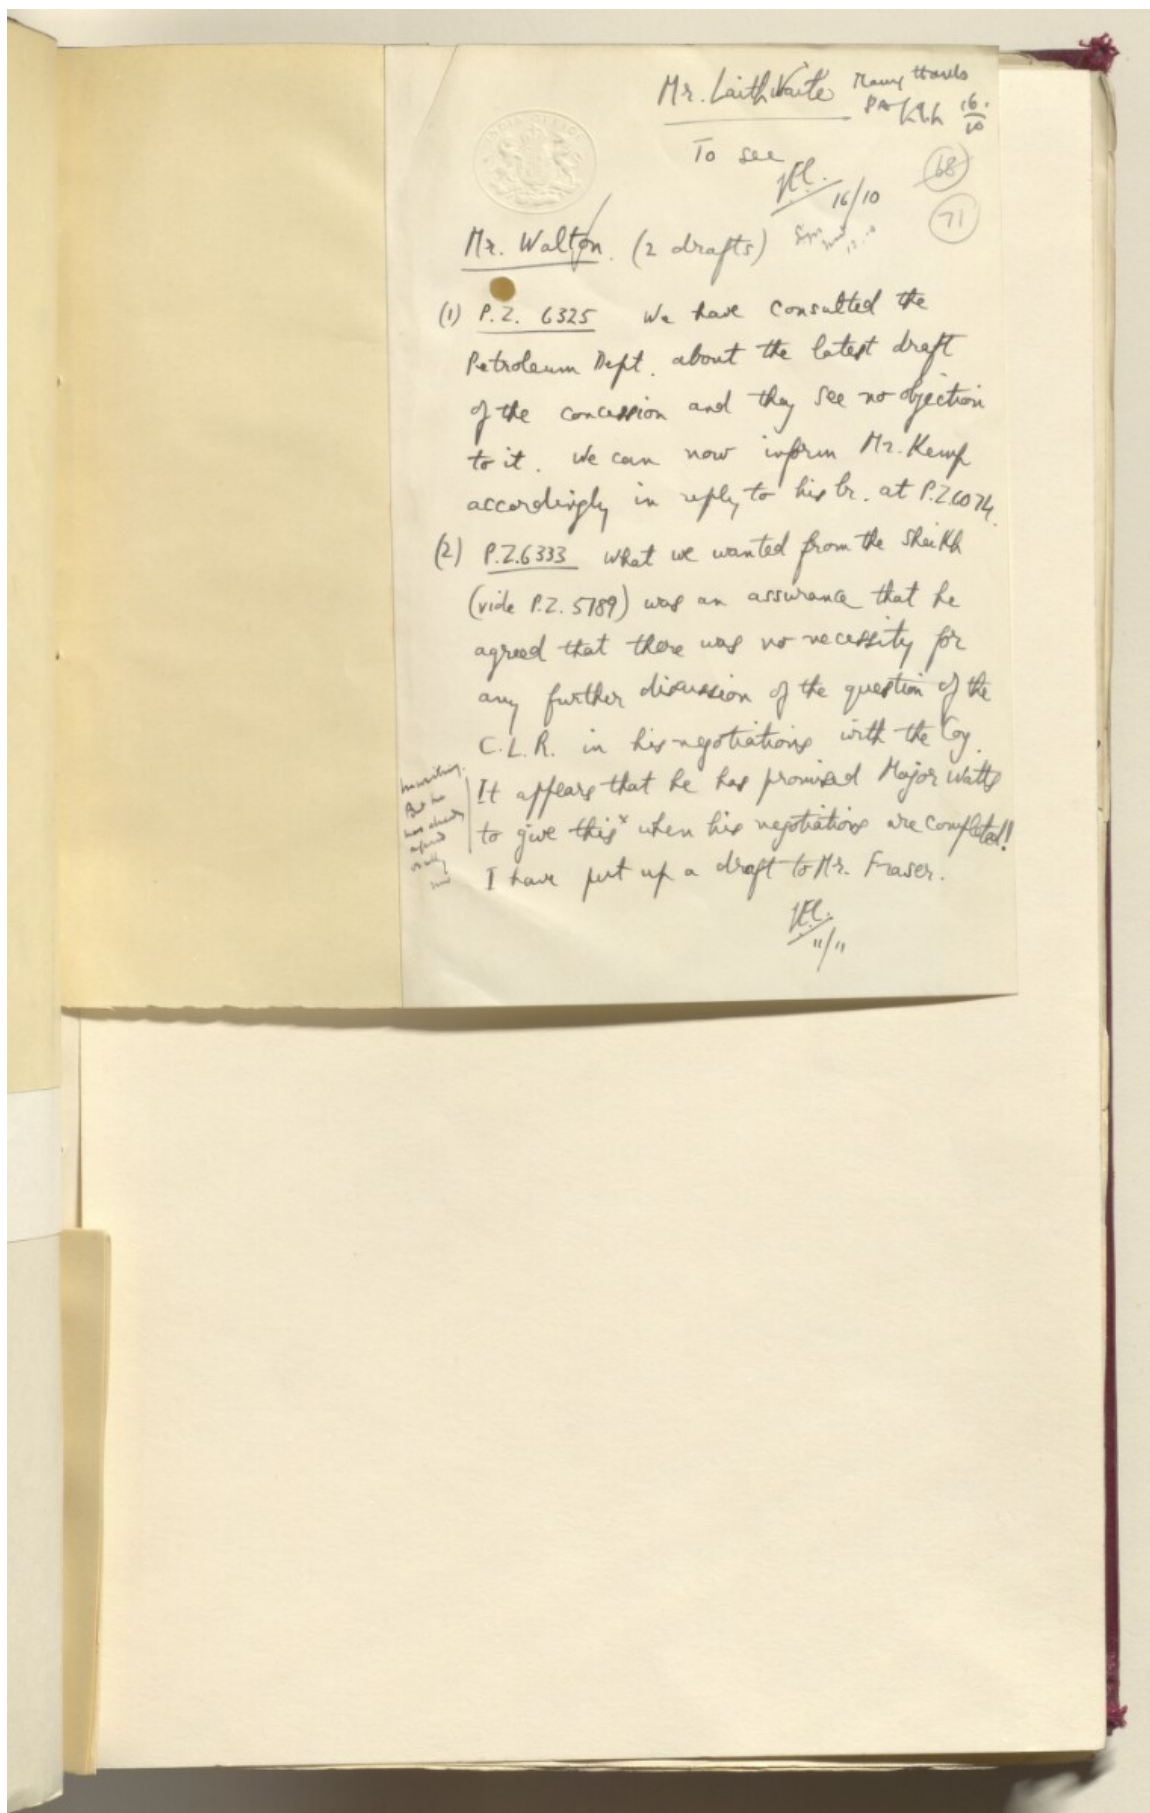 Mr. Laithwaite Many thanks
16.
10
To see
16/10
68
71
INDIA OFFICE
Mr. Walton. (2 drafts)
(1) P.Z. 6325 We have consulted the
Petroleum Dept. about the latest draft
of the concession and they see no objection
to it. We can now inform Mr. Kemp
accordingly in reply to his lr. at P.Z.6074.
(2) P.Z.6333 What we wanted from the Sheikh
(vide P.Z. 5789) was an assurance that he
agreed that there was no necessity for
any further discussion of the question of the
C.L.R. in his negotiations with the Coy.
It appears that he has promised Major Watts
to give this x when his negotiations are completed!
I have put up a draft to Mr. Fraser.
11/11
x in writing.
But he
has already
agreed
orally